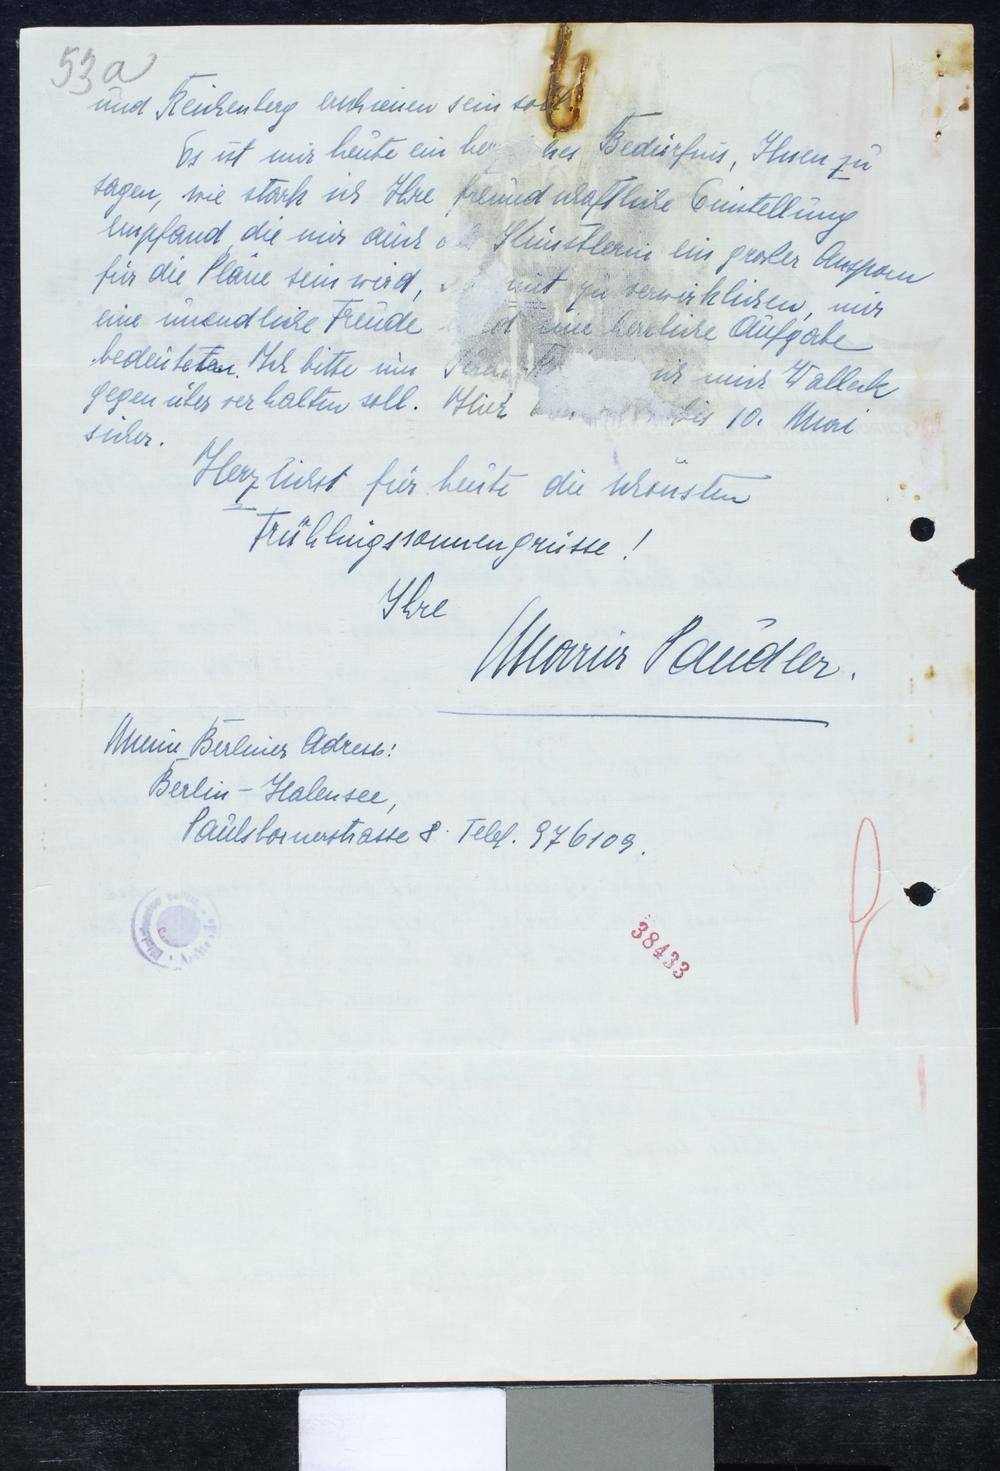 53a
und Reichenberg erschienen sein soll.
Es ist mir heute ein her ches Bedürfnis, Ihnen zu
sagen, wie stark ich Ihre freundschaftliche Einstellung
empfand, die mir auch als Künstlerin ein großer Ansporn
für die Pläne sein wird, mit zu verwirklichen, mir
eine unendliche Freude und eine herrliche Aufgabe
bedeuteten. Ich bitte um ich mich Walleck
gegenüber verhalten soll. Hier bis 10. Mai
sicher.
Herzlichst für heute die schönsten
Frühlingssonnengrüsse!
Ihre
Maria Paudler.
Meine Berliner Adress:
Berlin-Halensee,
Paulsbornerstrasse 8. Telef. 976109.
38433